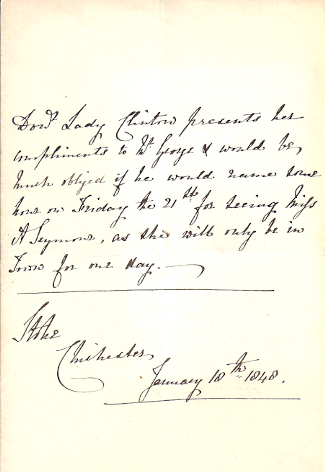 Dowr Lady Clinton presents her
compliments to Mr George & would be
much obliged if he would name some
hour on Friday the 21st for seeing Miss
A Seymour, as she will only be in
Town for one day.—
Stoke
Chichester
January 18th 1848.